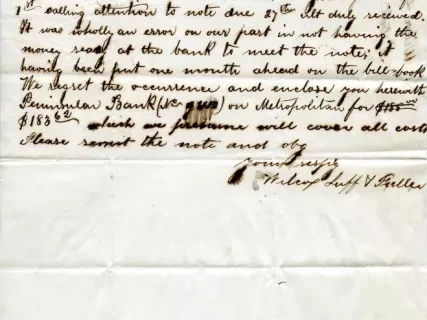 1st calling attention to note due 27th ult duly received.
It was wholly an error on our part in not having the
money ready at the bank to meet the note; it
having been put one month ahead on the bill-book
We regret the occurrence and enclose you herewith
Peninsular Bank on Metropolitan for
$183 62 which we presume will cover all costs
Please remit the note and obg
Yours respy
Wilcox Luff & Fuller